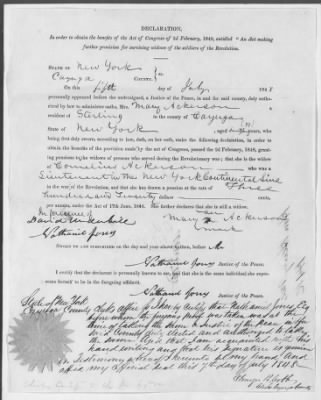 DECLARATION,
In order to obtain the benefits of the Act of Congress of 2d February, 1848, entitled "An Act making
further provision for surviving widows of the soldiers of the Revolution.
STATE OF New York
Cayuga COUNTY, ss
On this fifth day of July 1848
personally appeared before the undersigned, a Justice of the Peace, in and for said county, duly author-
ized by law to administer oaths, Mrs. Mary Ackerson a
resident of Sterling in the county of Cayuga
State of New York aged years, who
being first duly sworn, according to law, doth, on her oath, make the following declaration, in order to
obtain the benefits of the provision made by the act of Congress, passed the 2d February, 1848,
granting pensions to the widows of persons who served during the Revolutionary war; that she is the widow
of Cornelius Ackerson who was a
Lieutenant in the New York Continental Line
in the war of the Revolution, and that she has drawn a pension at the rate of Three
hundred and Twenty dollars
per annum, under the Act of 17th June, 1844. She further declares that she is still a widow.
In presence of
Mary Ackerson
Nathaniel Jones
mark
SWORN TO AND SUBSCRIBED on the day and year above written, before Me
Nathaniel Jones Justice of the Peace.
I certify that the declarant is personally known to me, and that she is the same individual she repre-
sents herself to be in the foregoing affidavit.
Nathaniel Jones Justice of the Peace.
State of New York
Cayuga County Clerks office I hereby certify that Nathaniel Jones Esq
before whom the foregoing proof was taken was at the
time of taking the same a Justice of the Peace in the
said County duly elected and authorized to take
the same And that I am acquainted with his
hand writing and that his signature is genuine
In Testimony whereof I hereunto set my hand and
affix my official seal this 7th day of July 1848